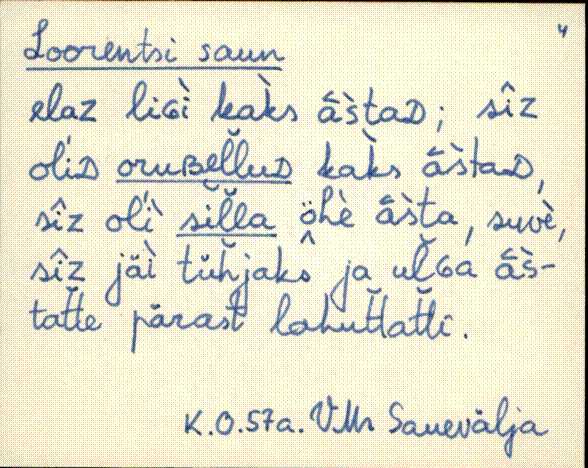 4
Loorentsi saun
elaz liGì kak̀s âs̀taD; sîz
ol'iD oruBel̆luD kak̀s âs̀taD,
sîz ol'ì sil̆l̆a ö̂hè âs̀ta, suvè,
sîz jäì tüh̆jaks ja ul̆Ga âs̀-
tat̆te pärast lahut̆tat̆ti.
K.O.57a. VMr Sauevälja